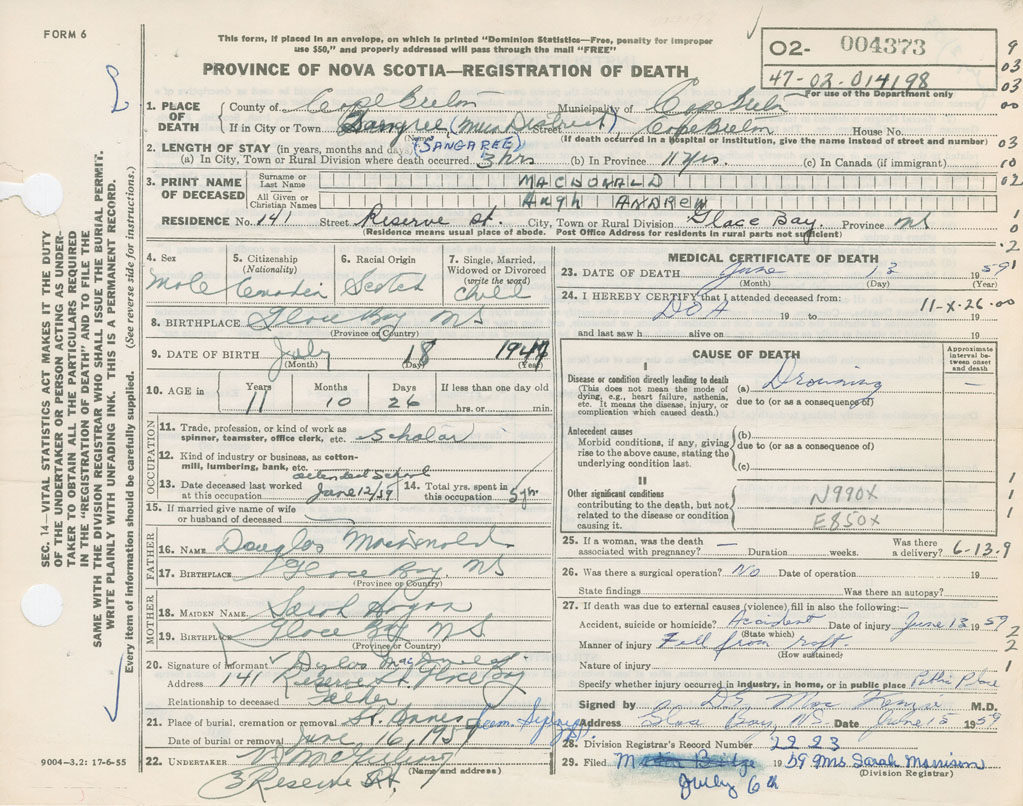 FORM 6
This form, if placed in an envelope, on which is printed "Dominion Statistics—Free, penalty for improper
use $50," and properly addressed will pass through the mail "FREE"
PROVINCE OF NOVA SCOTIA—REGISTRATION OF DEATH
02- 004373
47-02-014198
For use of the Department only
1. PLACE OF DEATH
County of Cape Breton Municipality of Cape Breton
If in City or Town (Name) Street Cape Breton House No.
(SANGAREE) (If death occurred in a hospital or institution, give the name instead of street and number)
2. LENGTH OF STAY (in years, months and days)
(a) In City, Town or Rural Division where death occurred 3 hrs (b) In Province 11 Yrs. (c) In Canada (if immigrant)
3. PRINT NAME OF DECEASED
Surname or Last Name MACDONALD
All Given or Christian Names ANDREW
RESIDENCE No. 141 Street Reserve St. City, Town or Rural Division Glace Bay Province NS
(Residence means usual place of abode. Post Office Address for residents in rural parts not sufficient)
4. Sex Male
5. Citizenship (Nationality) Canadian
6. Racial Origin Scotch
7. Single, Married, Widowed or Divorced (write the word) Child
8. BIRTHPLACE Glace Bay NS
(Province or Country)
9. DATE OF BIRTH July 18 1947
(Month) (Day) (Year)
10. AGE in Years 11 Months 10 Days 26 If less than one day old hrs. or min.
OCCUPATION
11. Trade, profession, or kind of work as spinner, teamster, office clerk, etc. Scholar
12. Kind of industry or business, as cotton-mill, lumbering, bank, etc. attended School
13. Date deceased last worked at this occupation June 12/59
14. Total yrs. spent in this occupation 5 yrs
15. If married give name of wife or husband of deceased
FATHER
16. NAME Douglas MacDonald
17. BIRTHPLACE Glace Bay, NS
(Province or Country)
MOTHER
18. MAIDEN NAME Sarah Hogan
19. BIRTHPLACE Glace Bay NS
(Province or Country)
20. Signature of informant Douglas MacDonald
Address 141 Reserve St. Glace Bay
Relationship to deceased Father
21. Place of burial, cremation or removal St. Annes Cem.
Date of burial or removal June 16, 1959
22. UNDERTAKER
(Name and address)
Reserve St.
9004-3.2: 17-6-55
MEDICAL CERTIFICATE OF DEATH
23. DATE OF DEATH June 13 1959
(Month) (Day) (Year)
24. I HEREBY CERTIFY that I attended deceased from: 11-X-26-00
DOA 19 to 19
and last saw h alive on 19
CAUSE OF DEATH
Approximate interval between onset and death
I
Disease or condition directly leading to death
(This does not mean the mode of dying, e.g., heart failure, asthenia, etc. It means the disease, injury, or complication which caused death.)
(a) Drowning —
due to (or as a consequence of)
Antecedent causes
Morbid conditions, if any, giving rise to the above cause, stating the underlying condition last.
(b)
due to (or as a consequence of)
(c)
II
Other significant conditions
contributing to the death, but not related to the disease or condition causing it.
N990X
E850X
25. If a woman, was the death associated with pregnancy? — Duration weeks. Was there a delivery? 6-13-9
26. Was there a surgical operation? No Date of operation 19
State findings Was there an autopsy?
27. If death was due to external causes (violence) fill in also the following:—
Accident, suicide or homicide? Accident Date of injury June 13 1959
(State which)
Manner of injury Fall from raft.
(How sustained)
Nature of injury
Specify whether injury occurred in industry, in home, or in public place Public Place
Signed by MacKenzie M.D.
Address Glace Bay, NS Date June 15 1959
28. Division Registrar's Record Number 2223
29. Filed 1959 Mrs Sarah Morrison
July 6th (Division Registrar)
SEC. 14—VITAL STATISTICS ACT MAKES IT THE DUTY
OF THE UNDERTAKER OR PERSON ACTING AS UNDER-
TAKER TO OBTAIN ALL THE PARTICULARS REQUIRED
IN THE "REGISTRATION OF DEATH" AND TO FILE THE
SAME WITH THE DIVISION REGISTRAR WHO SHALL ISSUE THE BURIAL PERMIT.
WRITE PLAINLY WITH UNFADING INK. THIS IS A PERMANENT RECORD.
Every item of information should be carefully supplied. (See reverse side for instructions.)